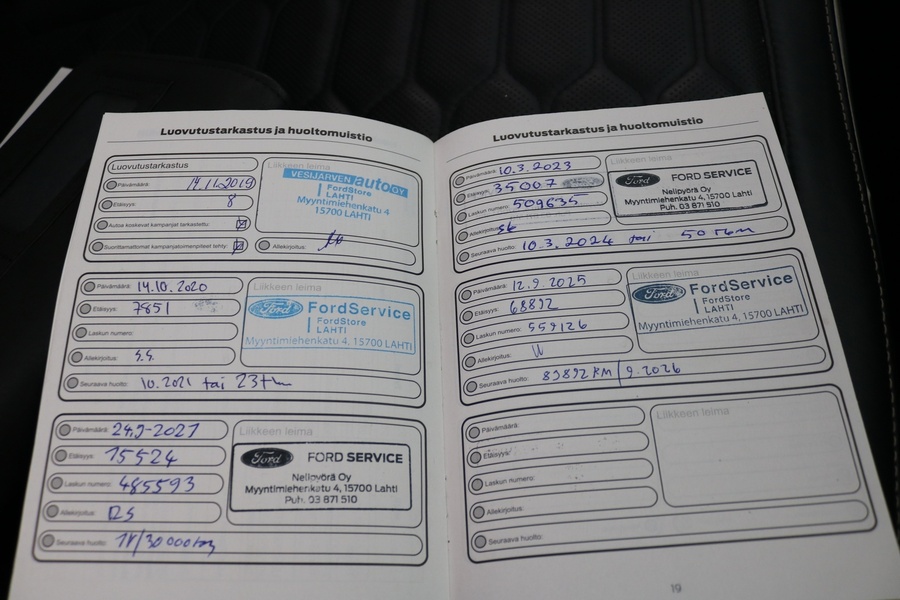 Luovutustarkastus ja huoltomuistio
Luovutustarkastus
Päivämäärä: 14.11.2019
Etäisyys: 8
Autoa koskevat kampanjat tarkastettu:
Suorittamattomat kampanjatoimenpiteet tehty:
Allekirjoitus:
Liikkeen leima
VESIJÄRVEN auto OY
FordStore
LAHTI
Myyntimiehenkatu 4
15700 LAHTI
Päivämäärä: 14.10.2020
Etäisyys: 7851
Laskun numero:
Allekirjoitus: S.S.
Seuraava huolto: 10.2021 tai 23tkm
Liikkeen leima
Ford FordService
FordStore
LAHTI
Myyntimiehenkatu 4, 15700 LAHTI
Päivämäärä: 24.9-2021
Etäisyys: 15524
Laskun numero: 485593
Allekirjoitus:
Seuraava huolto: 1V/30000km
Liikkeen leima
Ford FORD SERVICE
Nelipyörä Oy
Myyntimiehenkatu 4, 15700 Lahti
Puh. 03 871 510
Luovutustarkastus ja huoltomuistio
Päivämäärä: 10.3.2023
Etäisyys: 35007
Laskun numero: 509635
Allekirjoitus:
Seuraava huolto: 10.3.2024 tai 50 tkm
Liikkeen leima
Ford FORD SERVICE
Nelipyörä Oy
Myyntimiehenkatu 4, 15700 Lahti
Puh. 03 871 510
Päivämäärä: 12.9.2025
Etäisyys: 68892
Laskun numero: 559126
Allekirjoitus:
Seuraava huolto: 83892 KM / 9.2026
Liikkeen leima
Ford FordService
FordStore
LAHTI
Myyntimiehenkatu 4, 15700 LAHTI
Päivämäärä:
Etäisyys:
Laskun numero:
Allekirjoitus:
Seuraava huolto:
Liikkeen leima
19